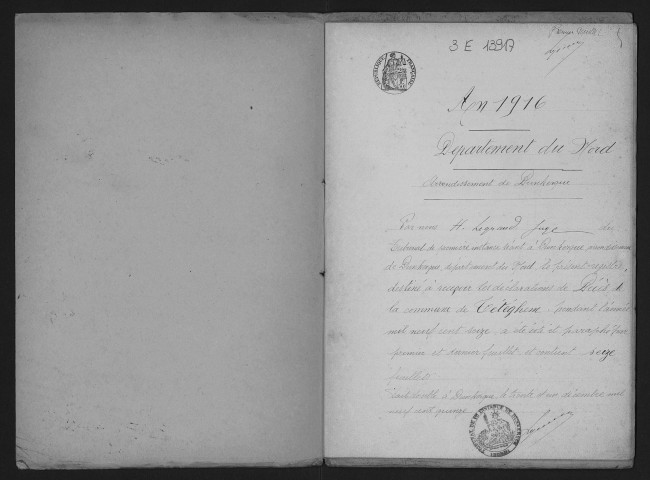 Premier feuillet
3 E 13917
RÉPUBLIQUE FRANÇAISE
An 1916
Département du Nord
Arrondissement de Dunkerque
Par nous H. Legrand Juge du
Tribunal de première instance séant à Dunkerque, arrondissement
de Dunkerque, département du Nord, le présent registre,
destiné à recevoir les déclarations de Décès de
la commune de Téteghem pendant l'année
mil neuf cent seize, a été coté et paraphé sur
premier et dernier feuillet et contient seize
feuillets
à Dunkerque, le trente et un décembre mil
neuf cent quinze